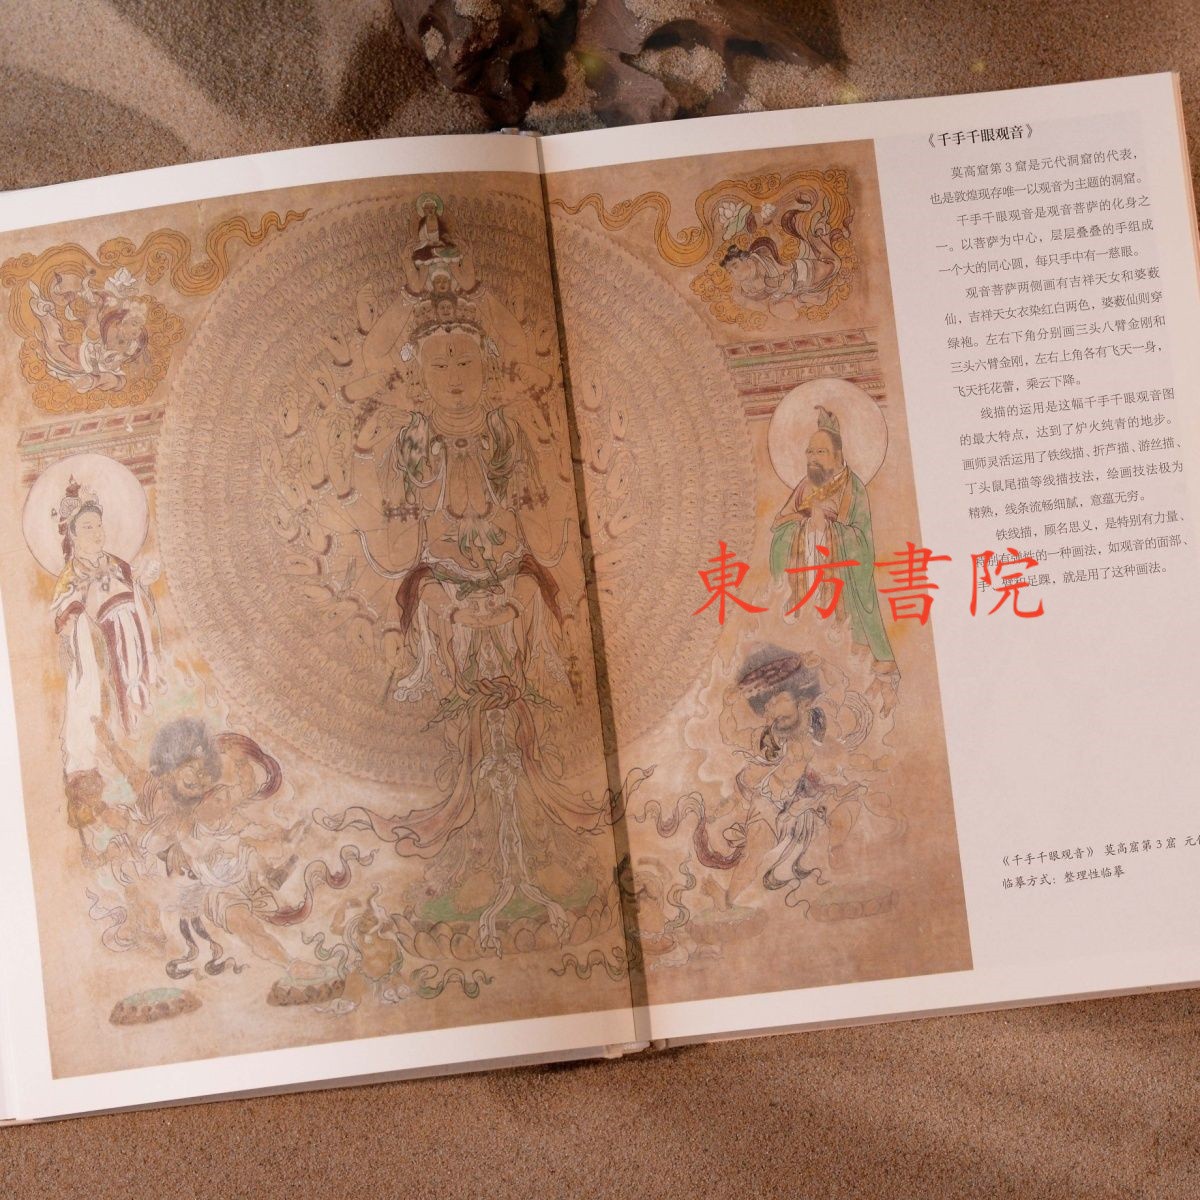 《千手千眼观音》
莫高窟第3窟是元代洞窟的代表，
也是敦煌现存唯一以观音为主题的洞窟。
千手千眼观音是观音菩萨的化身之
一。以菩萨为中心，层层叠叠的手组成
一个大的同心圆，每只手中有一慈眼。
观音菩萨两侧画有吉祥天女和婆薮
仙，吉祥天女衣染红白两色，婆薮仙则穿
绿袍。左右下角分别画三头八臂金刚和
三头六臂金刚，左右上角各有飞天一身，
飞天托花蕾，乘云下降。
线描的运用是这幅千手千眼观音图
的最大特点，达到了炉火纯青的地步。
画师灵活运用了铁线描、折芦描、游丝描、
丁头鼠尾描等线描技法，绘画技法极为
精熟，线条流畅细腻，意蕴无穷。
铁线描，顾名思义，是特别有力量、
特别有弹性的一种画法，如观音的面部、
手、臂和足踝，就是用了这种画法。
東方書院
《千手千眼观音》 莫高窟第3窟 元
临摹方式：整理性临摹